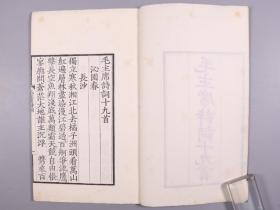 毛主席詩詞十九首
毛主席詩詞十九首
沁園春
長沙
獨立寒秋湘江北去橘子洲頭看萬山
紅遍層林盡染漫江碧透百舸爭流鷹
擊長空魚翔淺底萬類霜天競自由悵
寥廓問蒼茫大地誰主沉浮 攜來百